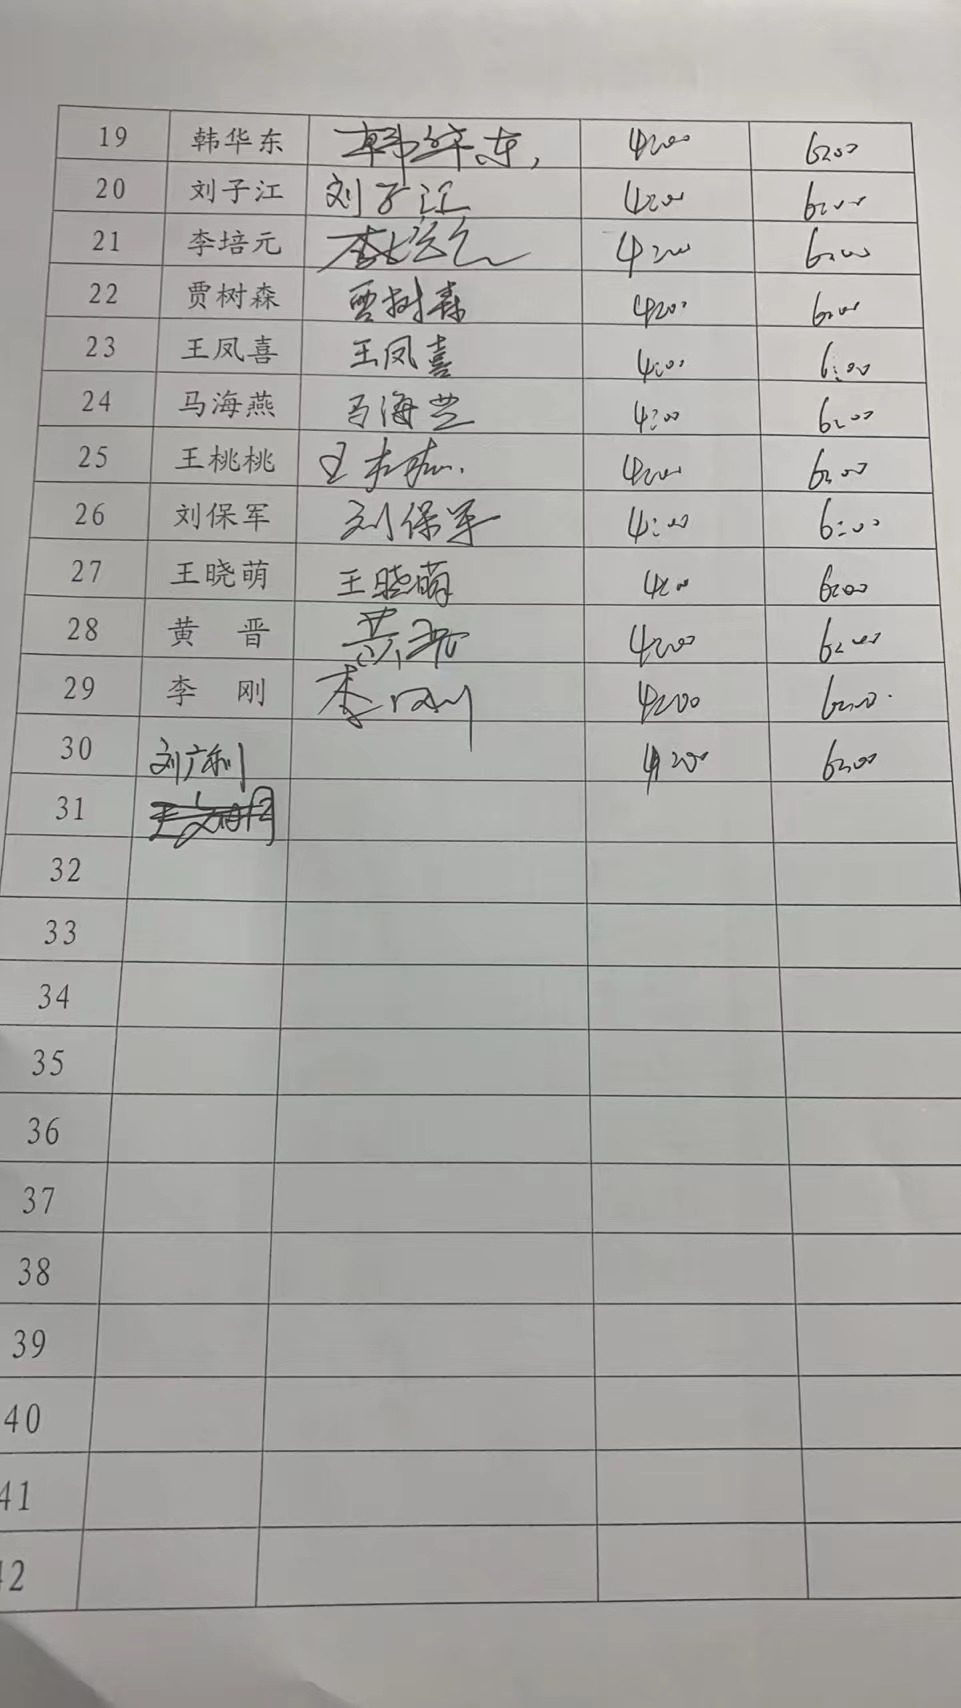 19 韩华东 韩华东, 4200 6200
20 刘子江 刘子江 4200 6200
21 李培元 李培元 4200 6200
22 贾树森 贾树森 4200 6200
23 王凤喜 王凤喜 4200 6200
24 马海燕 马海燕 4200 6200
25 王桃桃 王桃桃. 4200 6200
26 刘保军 刘保军 4200 6200
27 王晓萌 王晓萌 4200 6200
28 黄 晋 黄晋 4200 6200
29 李 刚 李刚 4200 6200
30 刘广利 4200 6200
31
32
33
34
35
36
37
38
39
40
41
42